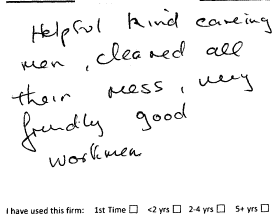 Helpful kind careing
men, cleaned all
their mess, very
friendly good
workmen
I have used this firm: 1st Time ☐ <2 yrs ☐ 2-4 yrs ☐ 5+ yrs ☐